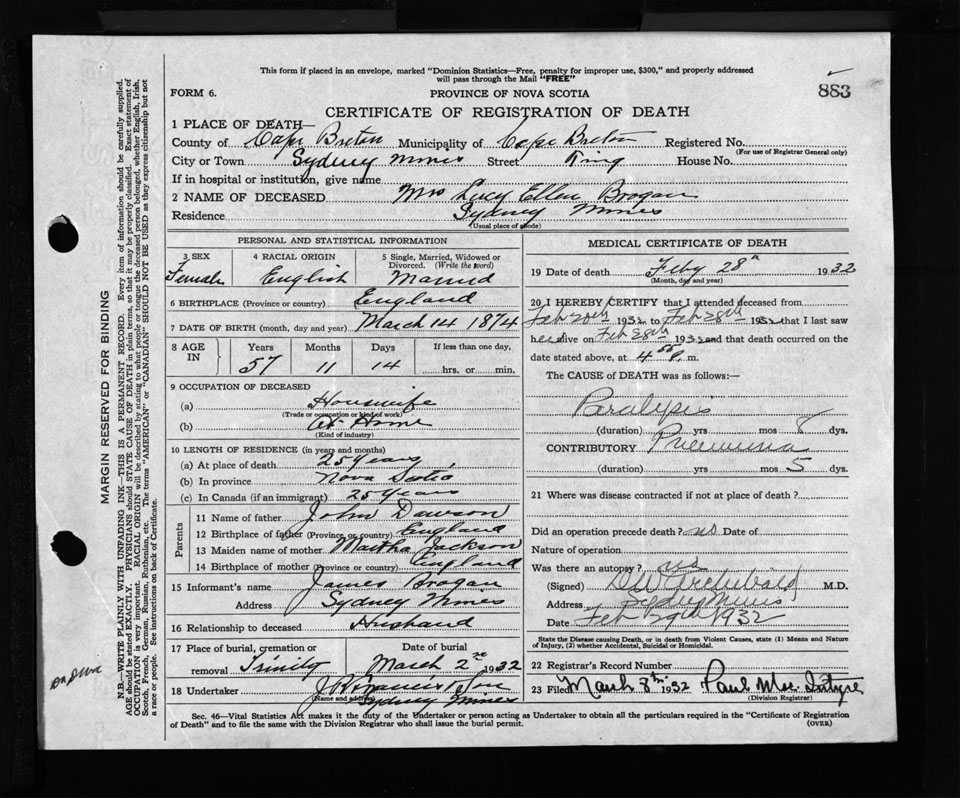 This form if placed in an envelope, marked "Dominion Statistics—Free, penalty for improper use, $300," and properly addressed
will pass through the Mail "FREE"
883
FORM 6.
PROVINCE OF NOVA SCOTIA
CERTIFICATE OF REGISTRATION OF DEATH
1 PLACE OF DEATH—
County of Cape Breton Municipality of Cape Breton Registered No.
(For use of Registrar General only)
City or Town Sydney Mines Street House No.
If in hospital or institution, give name
2 NAME OF DECEASED Mrs Lucy Ellen Brogan
Residence Sydney Mines
(Usual place of abode)
PERSONAL AND STATISTICAL INFORMATION
3 SEX Female
4 RACIAL ORIGIN English
5 Single, Married, Widowed or Divorced. (Write the word) Married
6 BIRTHPLACE (Province or country) England
7 DATE OF BIRTH (month, day and year) March 14 1874
8 AGE IN Years 57 Months 11 Days 14 If less than one day, hrs. or min.
9 OCCUPATION OF DECEASED
(a) Housewife
(Trade or occupation or kind of work)
(b) At Home
(Kind of industry)
10 LENGTH OF RESIDENCE (in years and months)
(a) At place of death 25 Years
(b) In province Nova Scotia
(c) In Canada (if an immigrant) 25 Years
Parents
11 Name of father John Dawson
12 Birthplace of father (Province or country) England
13 Maiden name of mother Martha Jackson
14 Birthplace of mother (Province or country) England
15 Informant's name James Brogan
Address Sydney Mines
16 Relationship to deceased Husband
17 Place of burial, cremation or removal Trinity
Date of burial March 2nd 1932
18 Undertaker
(Name and address) Sydney Mines
MEDICAL CERTIFICATE OF DEATH
19 Date of death Feby 28th 1932
(Month, day and year)
20 I HEREBY CERTIFY that I attended deceased from
Feb 20th 1932 to Feb 28th 1932 that I last saw
her alive on Feb 28th 1932 and that death occurred on the
date stated above, at 4 55 P. m.
The CAUSE of DEATH was as follows:—
Paralysis
(duration) yrs mos 8 dys.
CONTRIBUTORY Pneumonia
(duration) yrs mos 5 dys.
21 Where was disease contracted if not at place of death?
Did an operation precede death? no Date of
Nature of operation
Was there an autopsy? no
(Signed) Archibald M.D.
Address Sydney Mines
Date Feb 29th 1932
State the Disease causing Death, or in death from Violent Causes, state (1) Means and Nature
of Injury, (2) whether Accidental, Suicidal or Homicidal.
22 Registrar's Record Number
23 Filed March 8th 1932 Paul Mac Intyre
(Division Registrar)
Sec. 46—Vital Statistics Act makes it the duty of the Undertaker or person acting as Undertaker to obtain all the particulars required in the "Certificate of Registration
of Death" and to file the same with the Division Registrar who shall issue the burial permit.
(OVER)
MARGIN RESERVED FOR BINDING
N.B.—WRITE PLAINLY WITH UNFADING INK—THIS IS A PERMANENT RECORD. Every item of information should be carefully supplied.
AGE should be stated EXACTLY. PHYSICIANS should STATE CAUSE OF DEATH in plain terms, so that it may be properly classified. Exact statement of
OCCUPATION is very important. RACIAL ORIGIN will be described by stating to what people or tongue the deceased person belonged, whether English, Irish,
Scotch, French, German, Russian, Ruthenian, etc. The terms "AMERICAN" or "CANADIAN" SHOULD NOT BE USED as they express citizenship but not
a race or people. See instructions on back of Certificate.